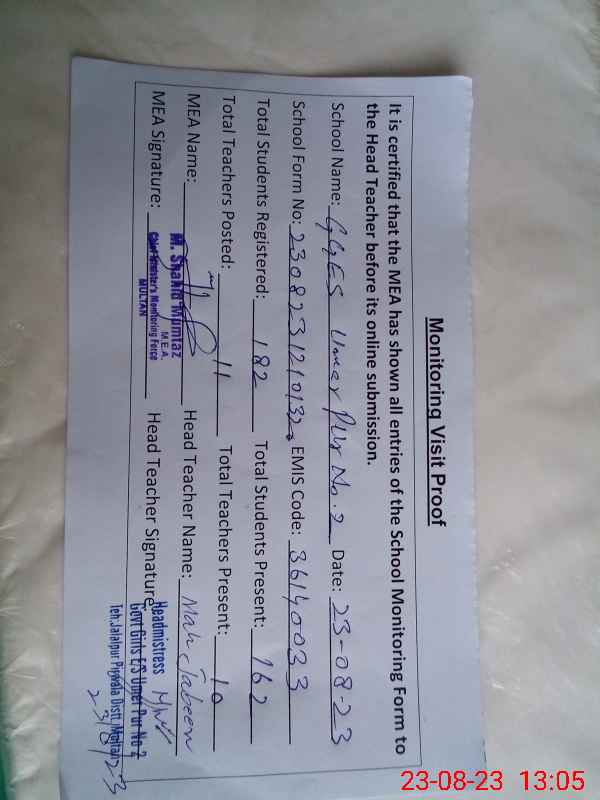 Monitoring Visit Proof
It is certified that the MEA has shown all entries of the School Monitoring Form to
the Head Teacher before its online submission.
School Name: GGES Umer Pur No.2 Date: 23-08-23
School Form No: 2308231210132 EMIS Code: 36140033
Total Students Registered: 182 Total Students Present: 162
Total Teachers Posted: 11 Total Teachers Present: 10
MEA Name: Head Teacher Name: Mah Jabeen
M. Shahid Mumtaz
M.E.A.
MEA Signature: Chief Minister's Monitoring Force Head Teacher Signature
MULTAN
Headmistress
Govt Girls E/S Umer Pur No 2
Teh. Jalalpur Pirwala Distt. Multan
23/8/23
23-08-23 13:05